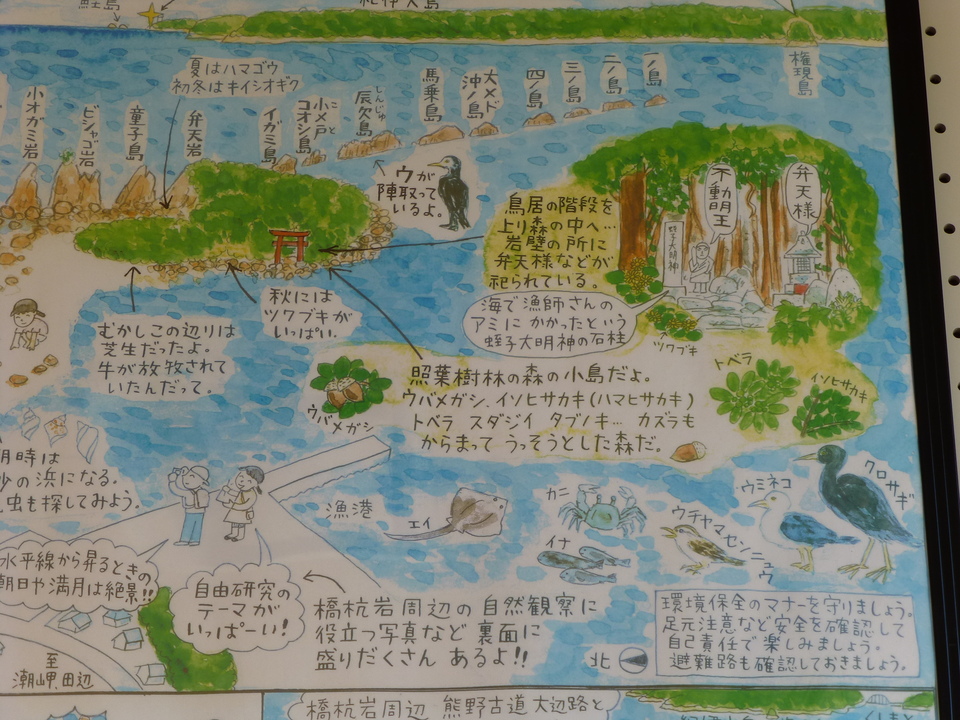 夏はハマゴウ
初冬はキイシオギク
権現島
一ノ島
二ノ島
三ノ島
四ノ島
大メド
沖ノ島
馬乗島
しんじゅ
辰欠島
こ と
小メ戸
コオシ島
イガミ島
弁天岩
童子島
ビシャゴ岩
小オガミ岩
ウが
陣取って
いるよ。
鳥居の階段を
上り森の中へ…
岩壁の所に
弁天様などが
祀られている。
不動明王
弁天様
蛭子大明神
海で漁師さんの
アミにかかったという
蛭子大明神の石柱
ツワブキ
秋には
ツワブキが
いっぱい。
むかしこの辺りは
芝生だったよ。
牛が放牧されて
いたんだって。
ウバメガシ
照葉樹林の森の小島だよ。
ウバメガシ、イソヒサカキ(ハマヒサカキ)
トベラ スダジイ タブノキ… カズラも
からまって うっそうとした森だ。
トベラ
イソヒサカキ
時は
の浜になる。
虫も探してみよう。
漁港
エイ
カニ
イナ
ウチヤマセンニュウ
ウミネコ
クロサギ
水平線から昇るときの
朝日や満月は絶景!!
自由研究の
テーマが
いっぱーい!
橋杭岩周辺の自然観察に
役立つ写真など裏面に
盛りだくさんあるよ!!
北
環境保全のマナーを守りましょう。
足元注意など安全を確認して
自己責任で楽しみましょう。
避難路も確認しておきましょう。
至
潮岬、田辺
橋杭岩周辺 熊野古道大辺路と